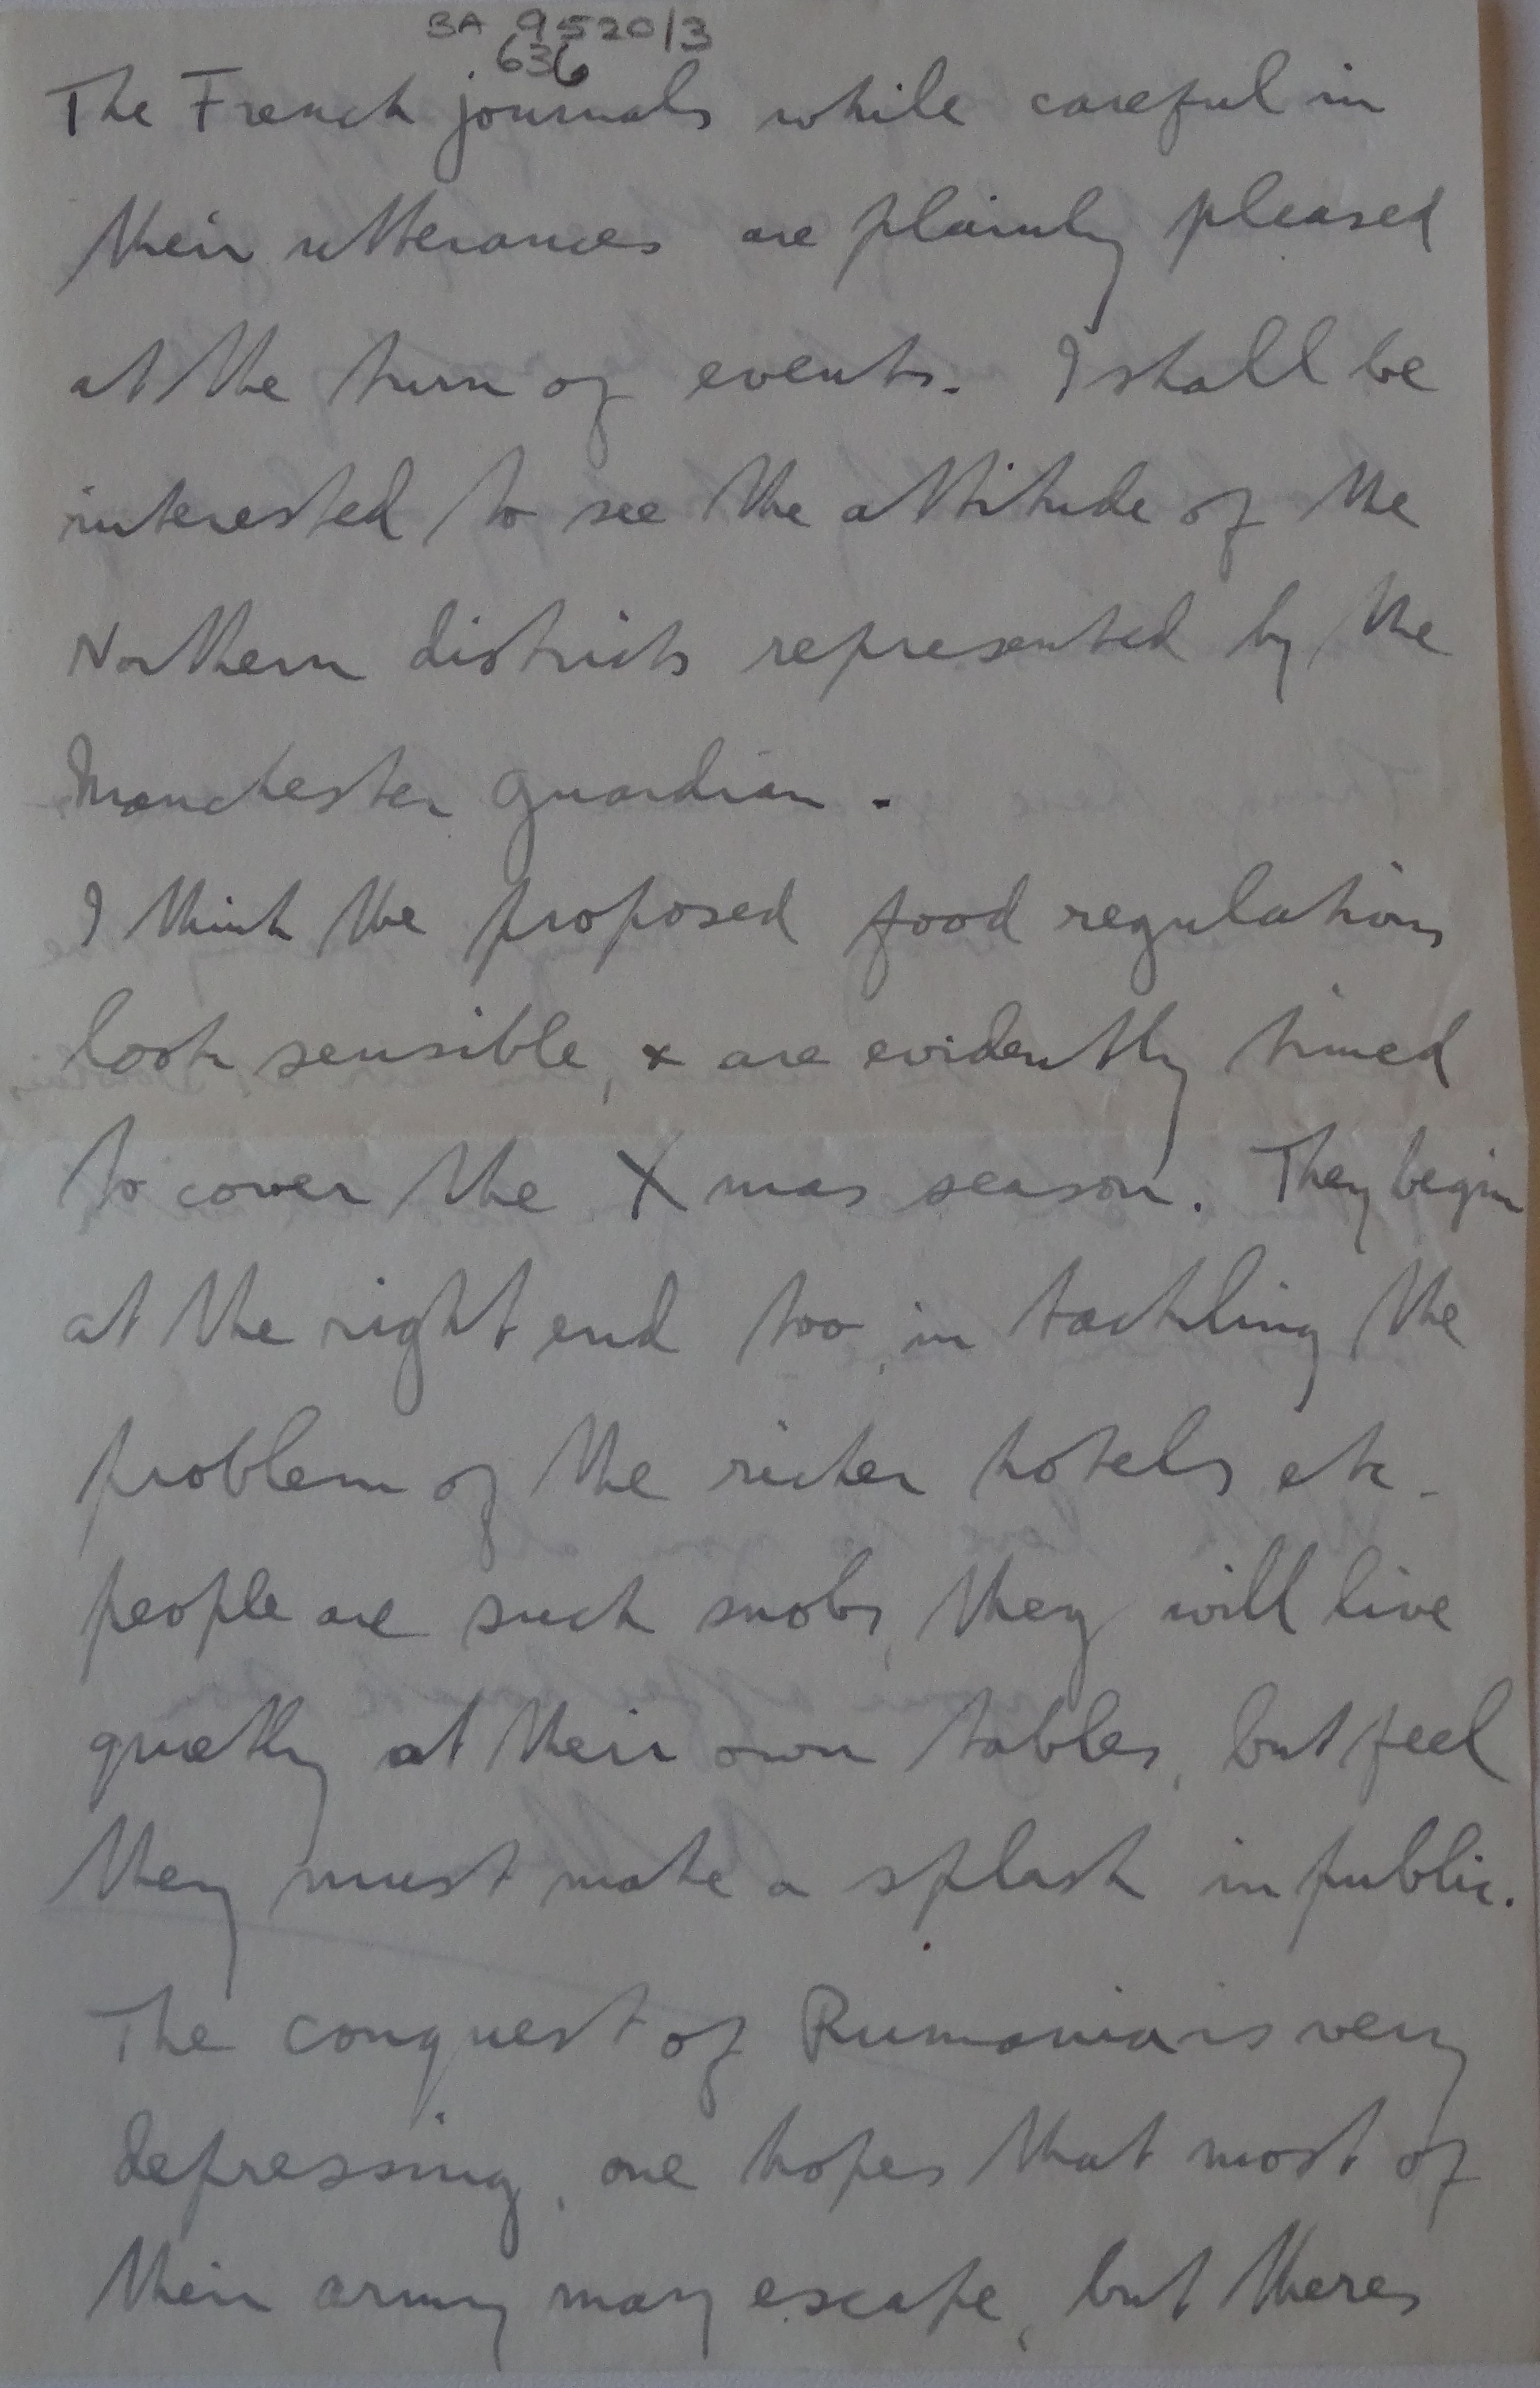 BA 9520/3
636
The French journals while careful in
their utterances are plainly pleased
at the turn of events. I shall be
interested to see the attitude of the
Northern districts represented by the
Manchester Guardian.
I think the proposed food regulations
look sensible, & are evidently timed
to cover the Xmas season. They begin
at the right end too, in tackling the
problem of the richer hotels etc.
people are such snobs, they will live
quietly at their own tables, but feel
they must make a splash in public.
The conquest of Rumania is very
depressing, one hopes that most of
their army may escape, but theres